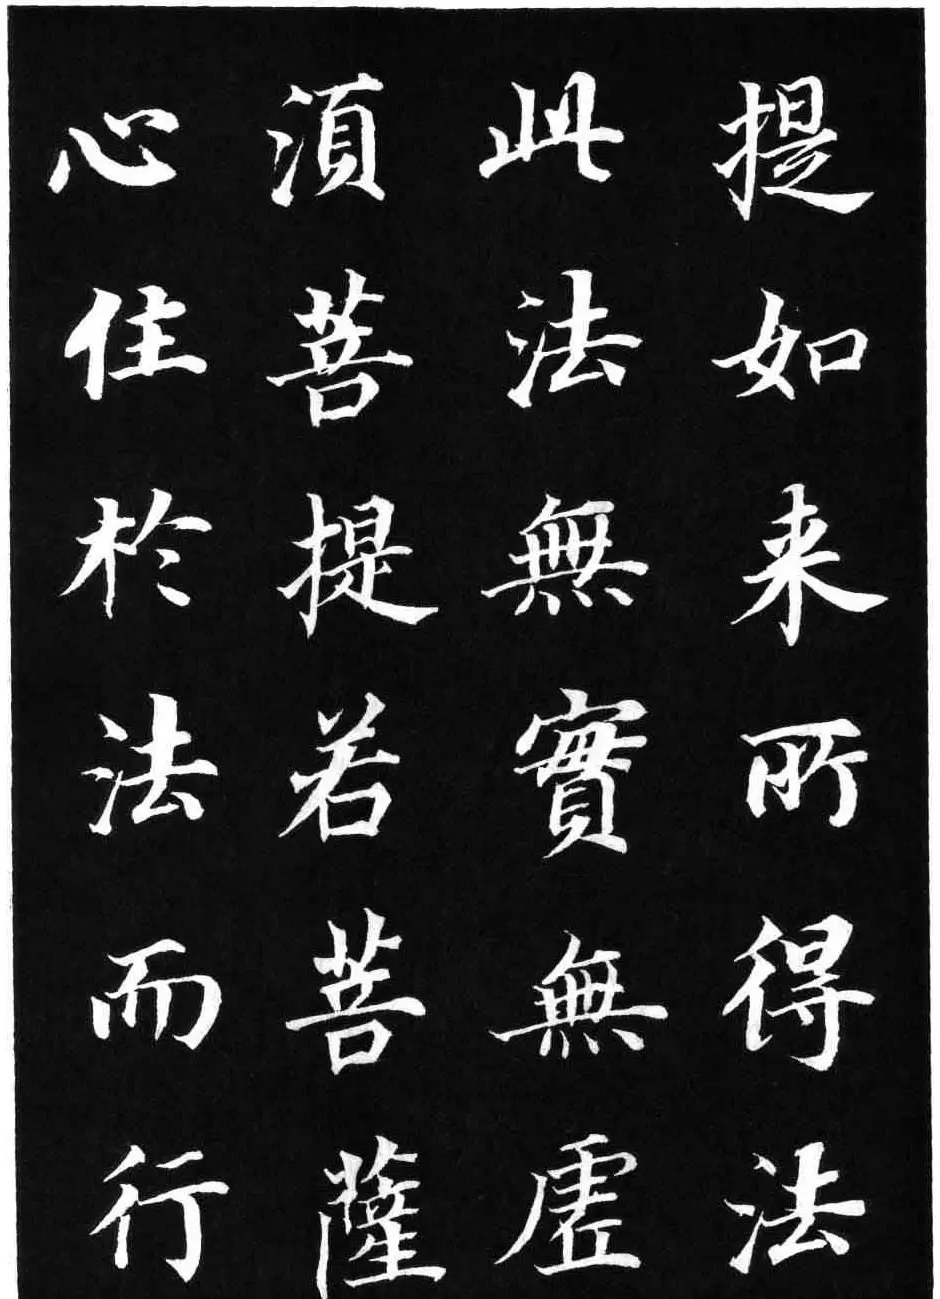 提如来所得法
此法無實無虛
湏菩提若菩薩
心住於法而行